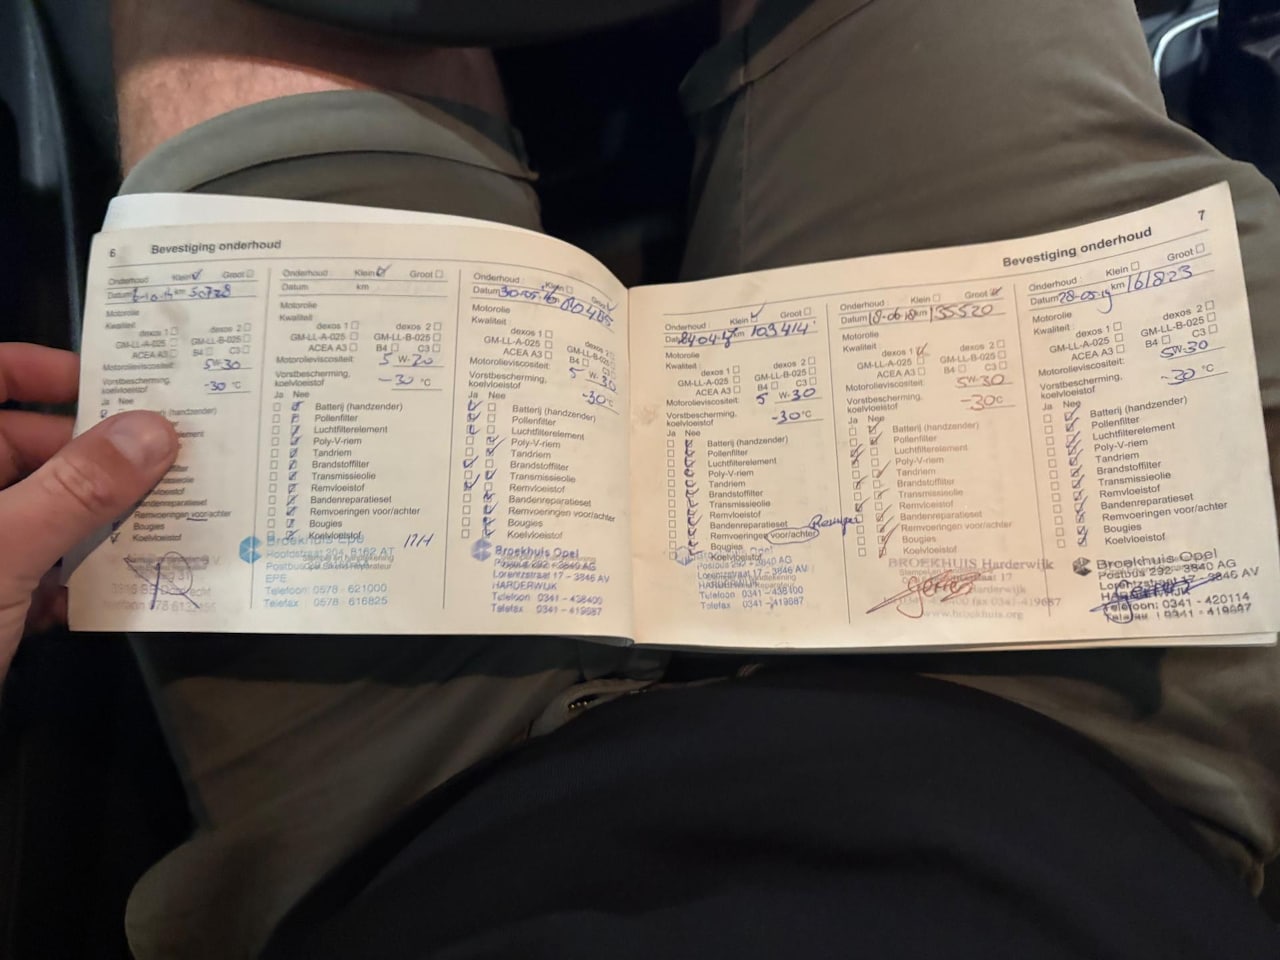 6 Bevestiging onderhoud
Onderhoud: Klein Groot
Datum km 50728
Motorolie
Kwaliteit
dexos 1 dexos 2
GM-LL-A-025 GM-LL-B-025
ACEA A3 B4 C3
Motorolieviscositeit: 5W-30
Vorstbescherming,
koelvloeistof -30 °C
Ja Nee
(handzender)
Bandenreparatieset
Remvoeringen voor/achter
Bougies
Koelvloeistof
Onderhoud: Klein Groot
Datum km
Motorolie
Kwaliteit
dexos 1 dexos 2
GM-LL-A-025 GM-LL-B-025
ACEA A3 B4 C3
Motorolieviscositeit: 5 W-30
Vorstbescherming,
koelvloeistof -30 °C
Ja Nee
Batterij (handzender)
Pollenfilter
Luchtfilterelement
Poly-V-riem
Tandriem
Brandstoffilter
Transmissieolie
Remvloeistof
Bandenreparatieset
Remvoeringen voor/achter
Bougies
Koelvloeistof
Broekhuis Epe
Hoofdstraat 204, 8162 AT
Postbus
EPE
Telefoon 0578 - 621000
Telefax 0578 - 616825
Onderhoud: Klein Groot
Datum km
Motorolie
Kwaliteit
dexos 1 dexos 2
GM-LL-A-025 GM-LL-B-025
ACEA A3 B4 C3
Motorolieviscositeit: 5 W-30
Vorstbescherming,
koelvloeistof -30 °C
Ja Nee
Batterij (handzender)
Pollenfilter
Luchtfilterelement
Poly-V-riem
Tandriem
Brandstoffilter
Transmissieolie
Remvloeistof
Bandenreparatieset
Remvoeringen voor/achter
Bougies
Koelvloeistof
Broekhuis Opel
Postbus 292 - 3840 AG
Lorentzstraat 17 - 3846 AV
HARDERWIJK
Telefoon 0341 - 438400
Telefax 0341 - 419687
7
Bevestiging onderhoud
Onderhoud: Klein Groot
Datum km 103414
Motorolie
Kwaliteit
dexos 1 dexos 2
GM-LL-A-025 GM-LL-B-025
ACEA A3 B4 C3
Motorolieviscositeit: 5 W-30
Vorstbescherming,
koelvloeistof -30 °C
Ja Nee
Batterij (handzender)
Pollenfilter
Luchtfilterelement
Poly-V-riem
Tandriem
Brandstoffilter
Transmissieolie
Remvloeistof
Bandenreparatieset
Remvoeringen voor/achter
Bougies
Koelvloeistof
Postbus 292 - 3840 AG
Lorentzstraat 17 - 3846 AV
HARDERWIJK
Telefoon 0341 - 438400
Telefax 0341 - 419687
Onderhoud: Klein Groot
Datum 18-06-18 km 135520
Motorolie
Kwaliteit
dexos 1 dexos 2
GM-LL-A-025 GM-LL-B-025
ACEA A3 B4 C3
Motorolieviscositeit: 5W-30
Vorstbescherming,
koelvloeistof -30 °C
Ja Nee
Batterij (handzender)
Pollenfilter
Luchtfilterelement
Poly-V-riem
Tandriem
Brandstoffilter
Transmissieolie
Remvloeistof
Bandenreparatieset
Remvoeringen voor/achter
Bougies
Koelvloeistof
BROEKHUIS Harderwijk
Harderwijk
fax 0341-419687
www.broekhuis.org
Onderhoud: Klein Groot
Datum 28-05-19 km 161823
Motorolie
Kwaliteit
dexos 1 dexos 2
GM-LL-A-025 GM-LL-B-025
ACEA A3 B4 C3
Motorolieviscositeit: 5W-30
Vorstbescherming,
koelvloeistof -30 °C
Ja Nee
Batterij (handzender)
Pollenfilter
Luchtfilterelement
Poly-V-riem
Tandriem
Brandstoffilter
Transmissieolie
Remvloeistof
Bandenreparatieset
Remvoeringen voor/achter
Bougies
Koelvloeistof
Broekhuis Opel
Postbus 292 - 3840 AG
Lorentzstraat 17 - 3846 AV
Telefoon: 0341 - 420114
Telefax : 0341 - 419687